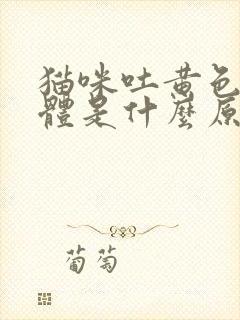 猫咪吐黄色
體是什麼原
葡萄